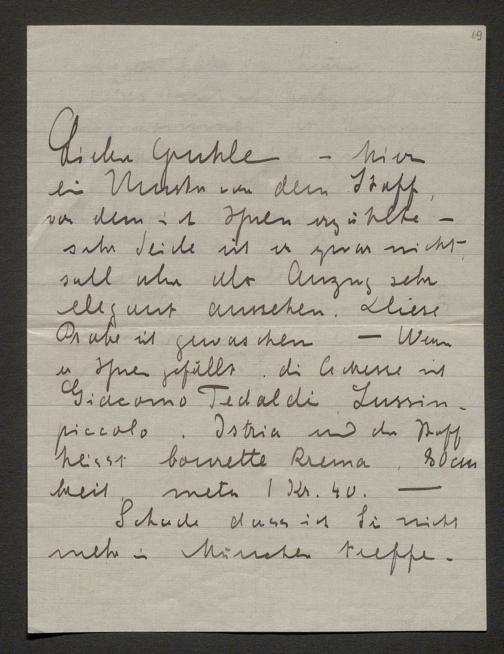 69
Lieber Gruhle – hier
ein Muster von dem Stoff,
von dem ich Ihnen erzählte –
sehr Seide ist er zwar nicht,
soll aber als Anzug sehr
elegant aussehen. Diese
Probe ist gewaschen – Wenn
er Ihnen gefällt, die Adresse ist
Giacomo Tedaldi Lussin-
piccolo, Istria und der Stoff
heisst bourrette Krema, 80 cm
breit, meter 1 Kr. 40. —
Schade dass ich Sie nicht
mehr in München treffe.